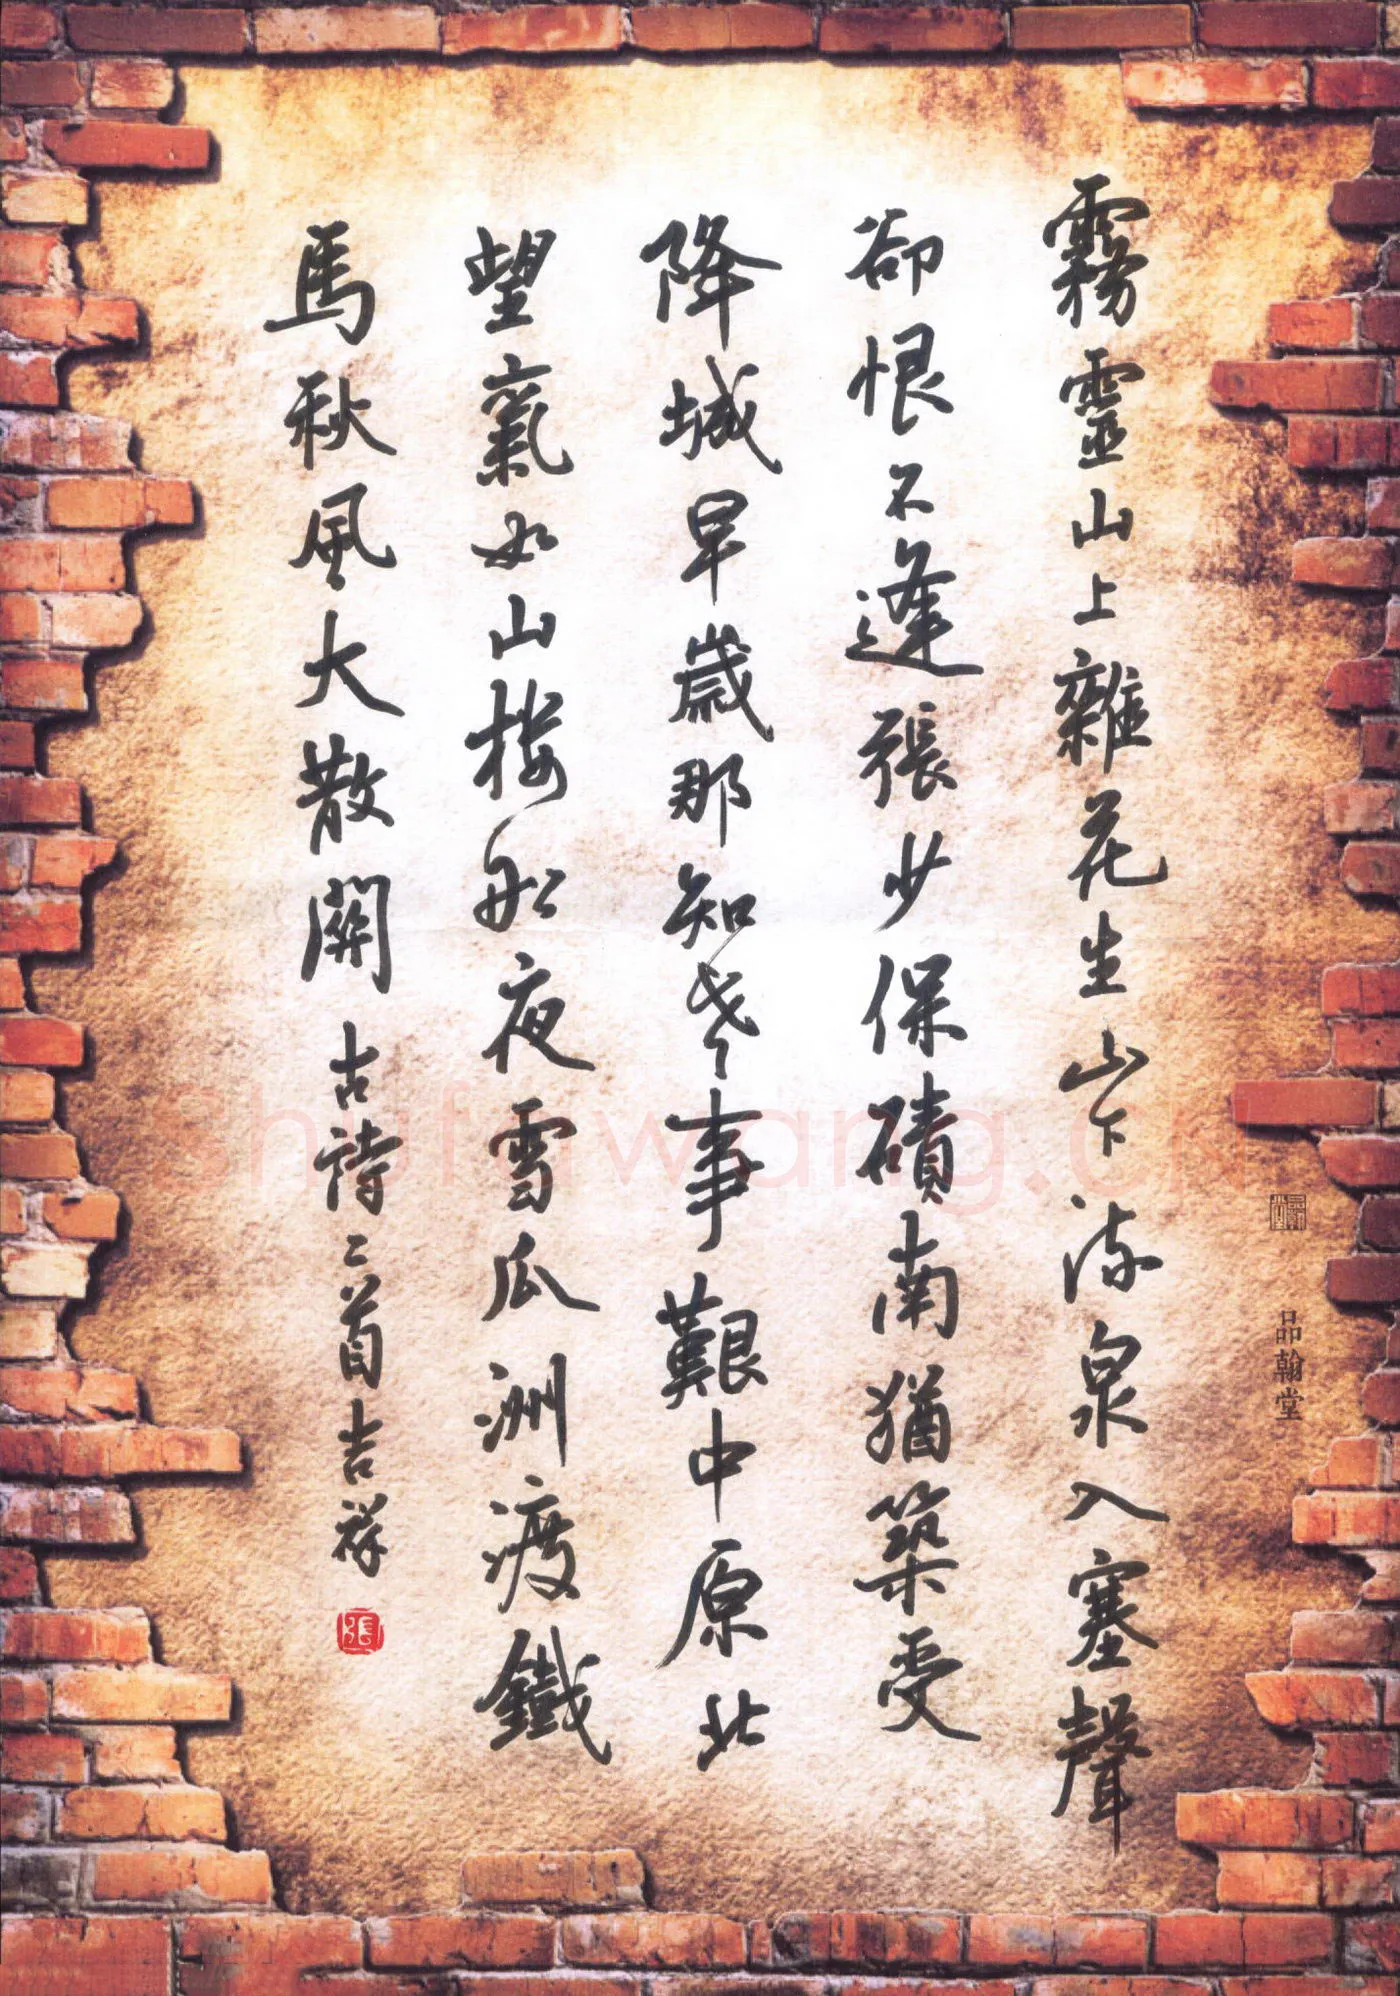 霧靈山上雜花生山下流泉入塞聲
卻恨不逢張少保磧南猶築受
降城早歲那知世事艱中原北
望氣如山樓船夜雪瓜洲渡鐵
馬秋風大散關
古詩二首吉祥
張
品翰堂
shufawang.cn